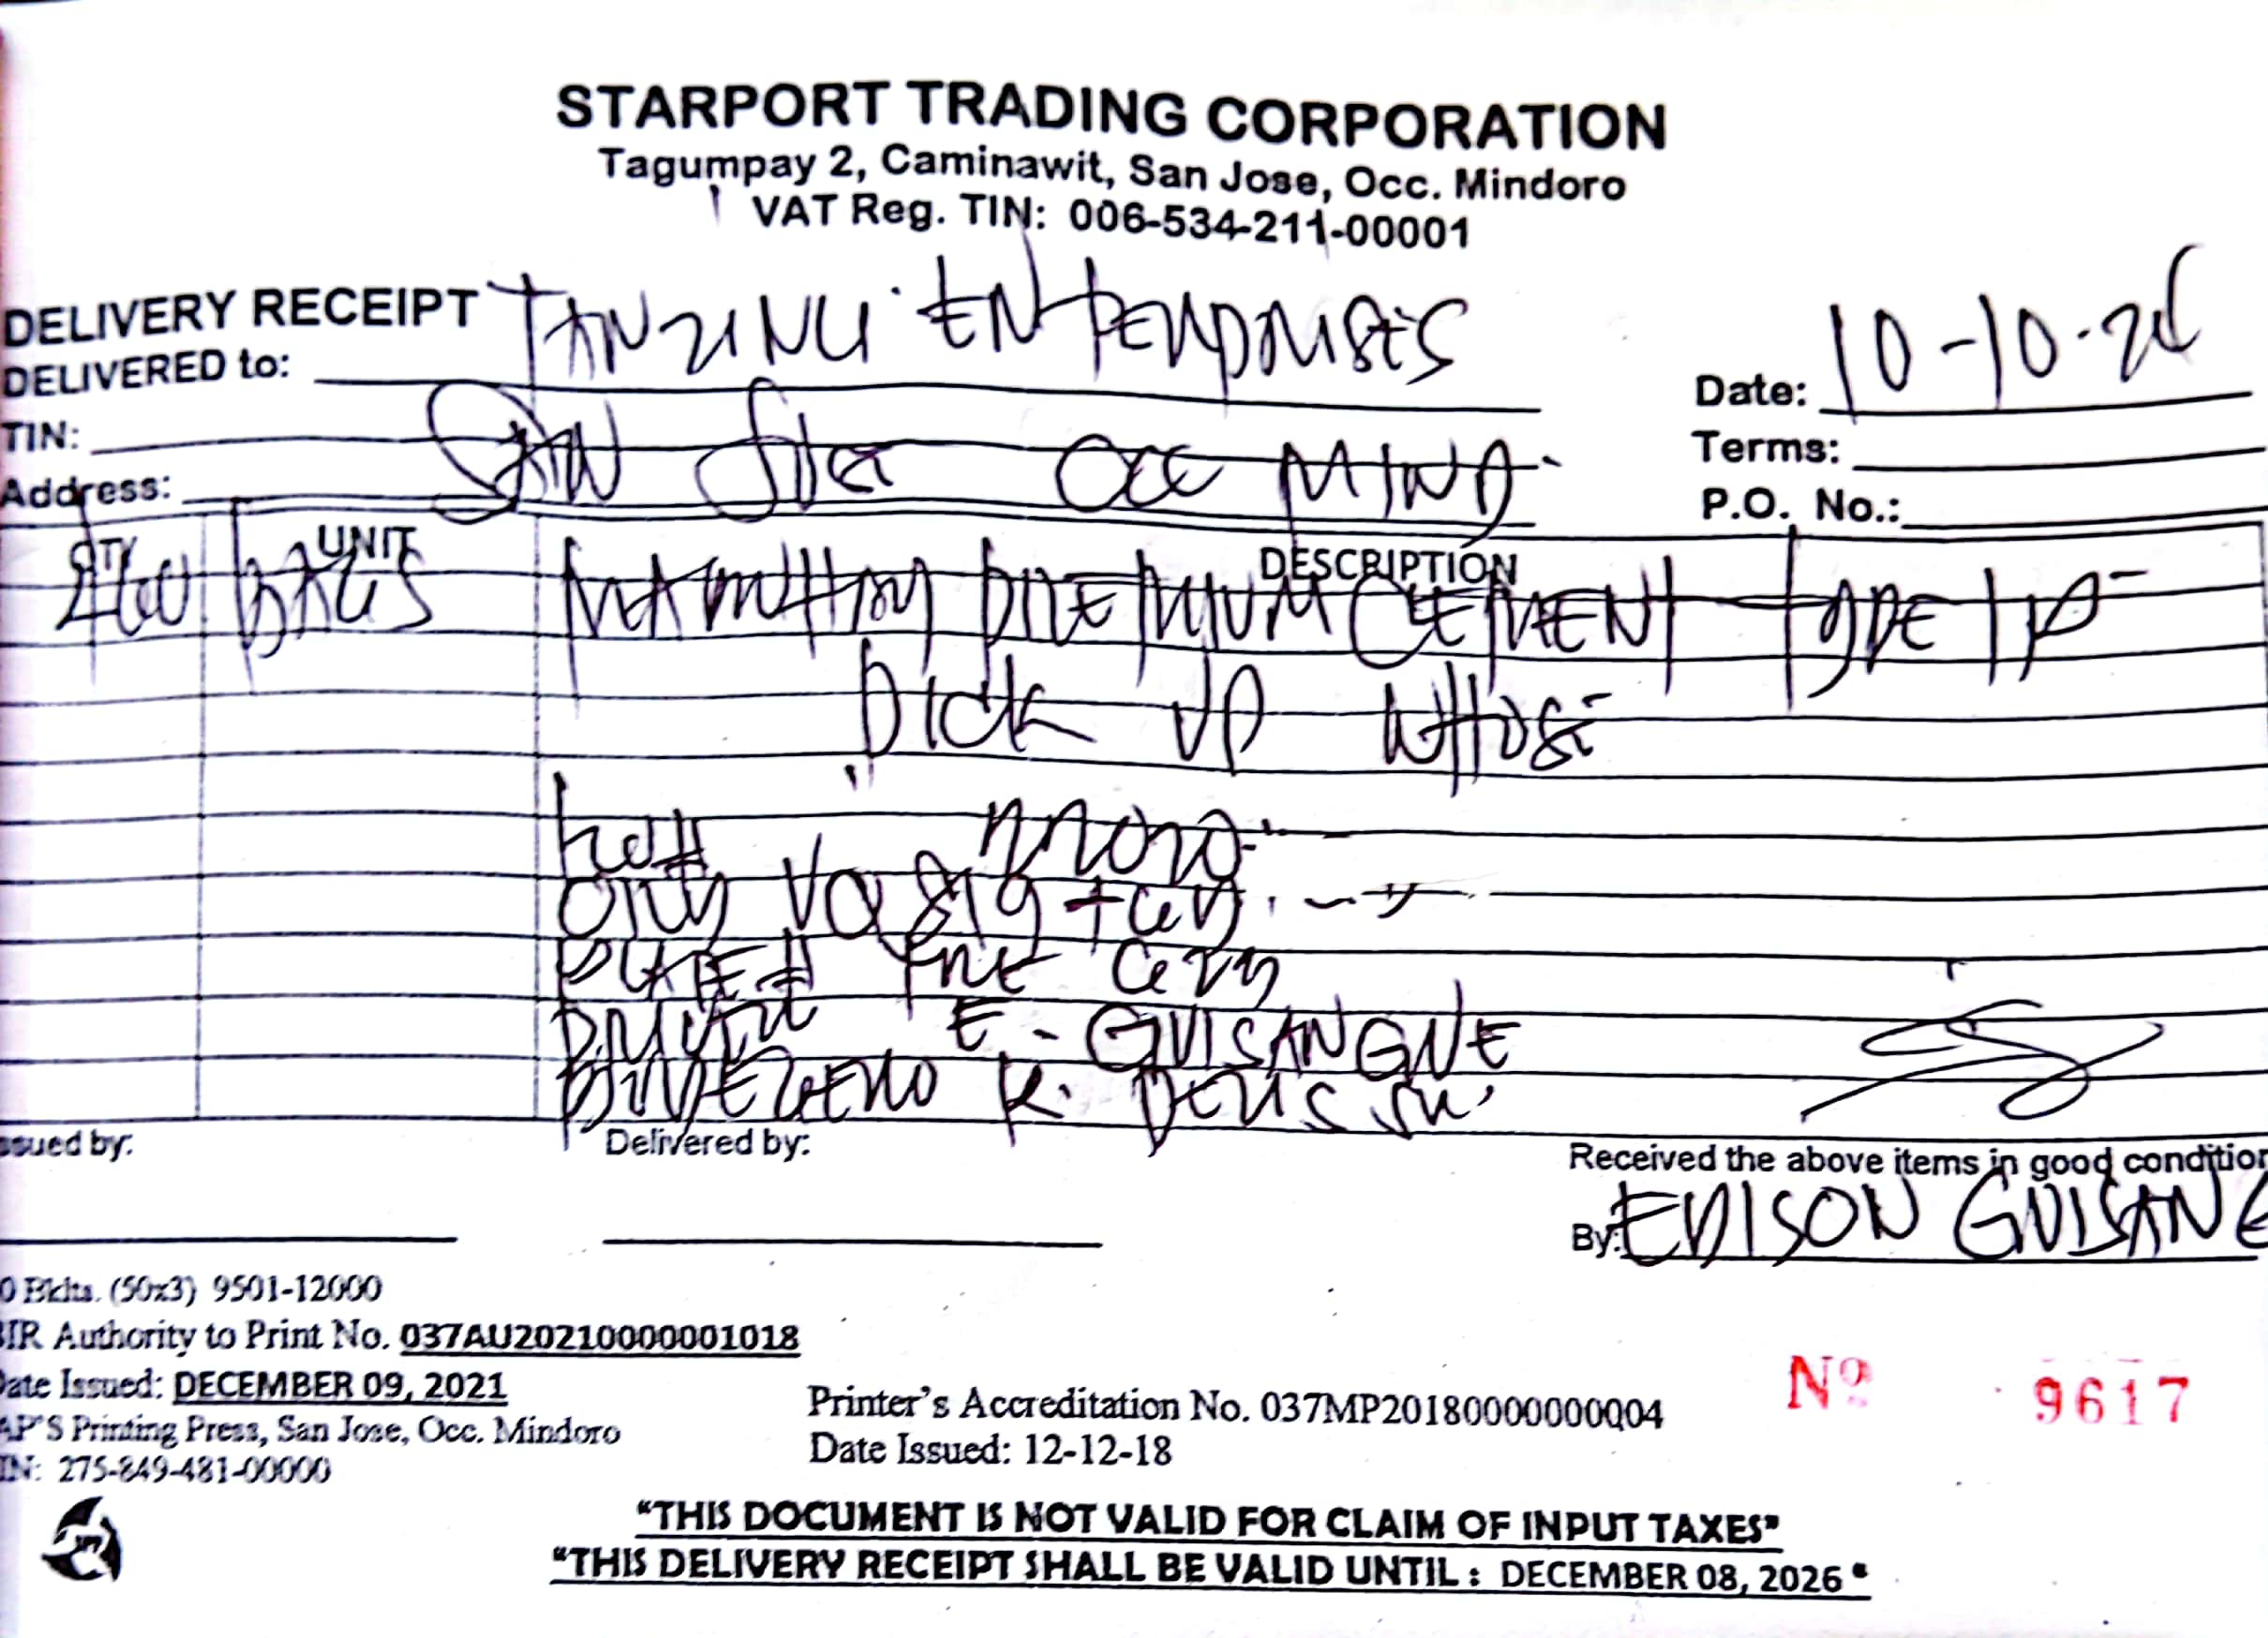 STARPORT TRADING CORPORATION
Tagumpay 2, Caminawit, San Jose, Occ. Mindoro
VAT Reg. TIN: 006-534-211-00001
DELIVERY RECEIPT
DELIVERED to: ENTERPRISES
Date: 10-10-
TIN:
Terms:
Address: SAN JOSE OCC MIND.
P.O. No.:
QTY UNIT DESCRIPTION
BAGS MAMMOTH PREMIUM CEMENT TYPE 1P
PICK UP WHOSE
PLATE#
DRIVER E. GUISANGNE
Issued by:
Delivered by:
Received the above items in good condition
By: EDISON GUISANG
0 Bklts. (50x3) 9501-12000
BIR Authority to Print No. 037AU20210000001018
Date Issued: DECEMBER 09, 2021
AP'S Printing Press, San Jose, Occ. Mindoro
TIN: 275-849-481-00000
Printer's Accreditation No. 037MP20180000000004
Date Issued: 12-12-18
Nº 9617
"THIS DOCUMENT IS NOT VALID FOR CLAIM OF INPUT TAXES"
"THIS DELIVERY RECEIPT SHALL BE VALID UNTIL : DECEMBER 08, 2026 "